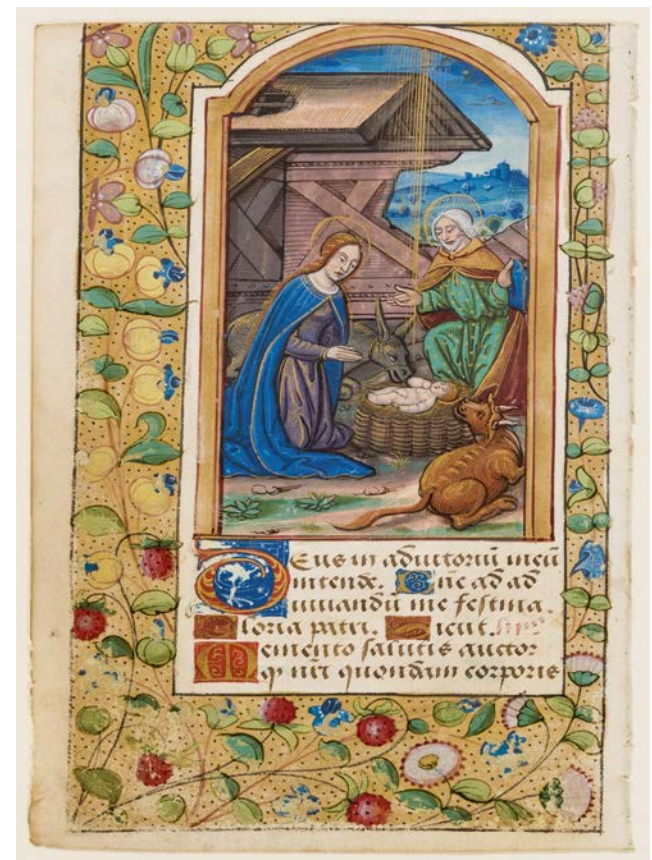 Deus in adiutoriū meū
intende. Dn̄e ad ad
iuuandū me festina.
Gloria patri. Sicut. hȳm̄
Memento salutis auctor
q̄ nr̄i quondam corporis